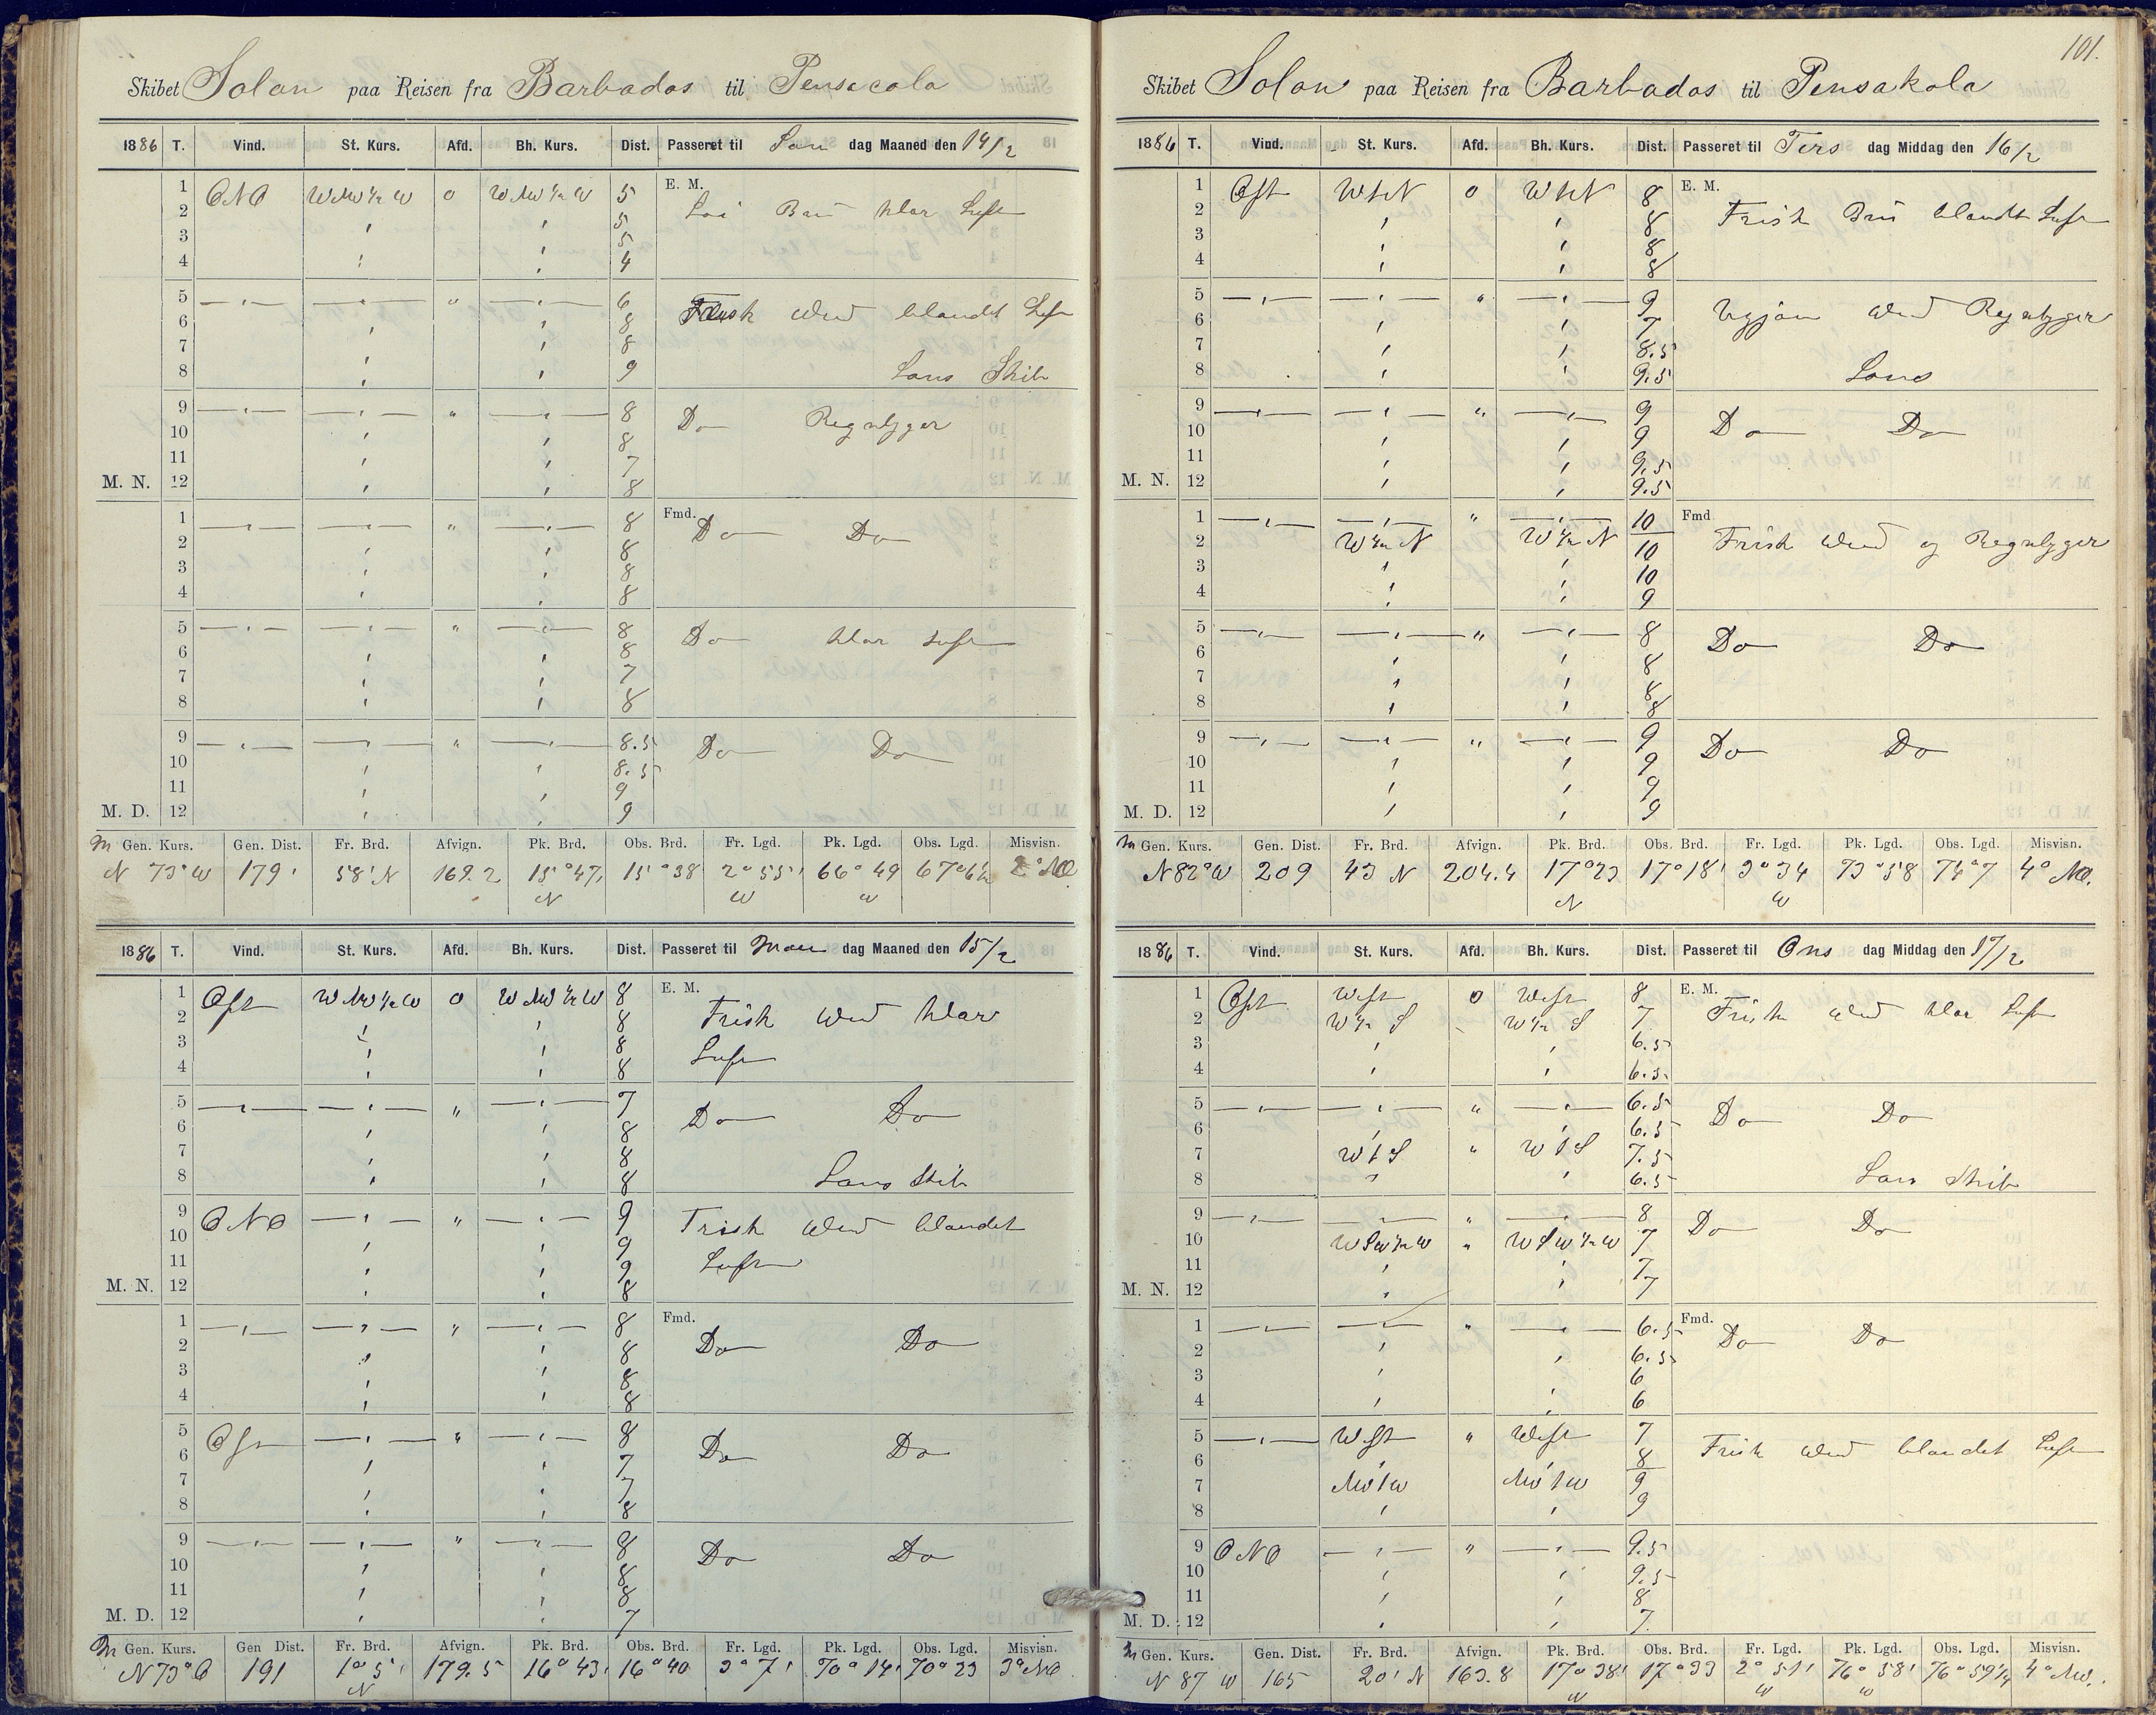 Skibet Solon paa Reisen fra Barbados til Pensacola
1886 T. Vind. St. Kurs. Afd. Bh. Kurs. Dist. Passeret til Søn dag Maaned den 14/2
1 ONO WNW½W 0 WNW½W 5 E. M.
2 5 Lai Bris klar Luft
3 5
4 4
5 6 Frisk Wind blandet Luft
6 8
7 8
8 9 Lens Skib
9 8 Do Regnbyger
10 8
11 7
M. N. 12 8
1 8 Fmd. Do Do
2 8
3 8
4 8
5 8 Do klar Luft
6 8
7 7
8 8
9 8.5 Do Do
10 8.5
11 9
M. D. 12 9
M Gen. Kurs. Gen. Dist. Fr. Brd. Afvign. Pk. Brd. Obs. Brd. Fr. Lgd. Pk. Lgd. Obs. Lgd. Misvisn.
N 73° W 179' 58' N 169.2 15°47' N 15°38 2°55' W 66°49 W 67°6½ 2° NO
1886 T. Vind. St. Kurs. Afd. Bh. Kurs. Dist. Passeret til Man dag Maaned den 15/2
1 Ost WNW½W 0 WNW½W 8 E. M.
2 8 Frisk Wind klar
3 8 Luft
4 8
5 7 Do Do
6 8
7 8
8 8 Lens Skib
9 ONO 9 Frisk Wind blandet
10 9
11 9 Luft
M. N. 12 8
1 8 Fmd. Do Do
2 8
3 8
4 8
5 Ost 8 Do Do
6 7
7 7
8 8
9 8 Do Do
10 8
11 8
M. D. 12 7
M Gen. Kurs. Gen Dist. Fr. Brd. Afvign. Pk. Brd. Obs. Brd. Fr. Lgd. Pk. Lgd. Obs. Lgd. Misvisn.
N 73° O 191 1°5' N 179.5 16°43' 16°40 3°7' 70°14' 70°23 3° NO
101.
Skibet Solon paa Reisen fra Barbados til Pensakola
1886 T. Vind. St. Kurs. Afd. Bh. Kurs. Dist. Passeret til Tirs dag Middag den 16/2
1 Ost WtN 0 WtN 8 E. M.
2 8 Frisk Bris blandt Luft
3 8
4 8
5 9 Ugjön Wind Regnbyger
6 7
7 8.5
8 9.5 Lens
9 9 Do Do
10 9
11 9.5
M. N. 12 9.5
1 10 Fmd
2 W½N W½N 10 Frisk Wind og Regnbyger
3 10
4 9
5 8 Do Do
6 8
7 8
8 8
9 9 Do Do
10 9
11 9
M. D. 12 9
M Gen. Kurs. Gen. Dist. Fr. Brd. Afvign. Pk. Brd. Obs. Brd. Fr. Lgd. Pk. Lgd. Obs. Lgd. Misvisn.
N 82° W 209 43 N 204.4 17°23 N 17°18' 3°34 W 73°58 74°7 4° NO.
1886 T. Vind. St. Kurs. Afd. Bh. Kurs. Dist. Passeret til Ons dag Middag den 17/2
1 Ost West 0 West 8 E. M.
2 W½S W½S 7 Frisk Wind klar Luft
3 6.5
4 6.5
5 6.5 Do Do
6 6.5
7 WtS WtS 7.5
8 6.5 Lens Skib
9 8 Do Do
10 WSW½W WSW½W 7
11 7
M. N. 12 7
1 6.5 Fmd. Do Do
2 6.5
3 6
4 6
5 West West 7 Frisk Wind blandet Luft
6 8
7 NWtW NWtW 9
8 9
9 ONO 9.5
10 9.5
11 8
M. D. 12 7
M Gen. Kurs. Gen. Dist. Fr. Brd. Afvign. Pk. Brd. Obs. Brd. Fr. Lgd. Pk. Lgd. Obs. Lgd. Misvisn.
N 87 W 165 20' N 163.8 17°38' 17°33 2°51' W 76°58' W 76°59¼ 4° NW.